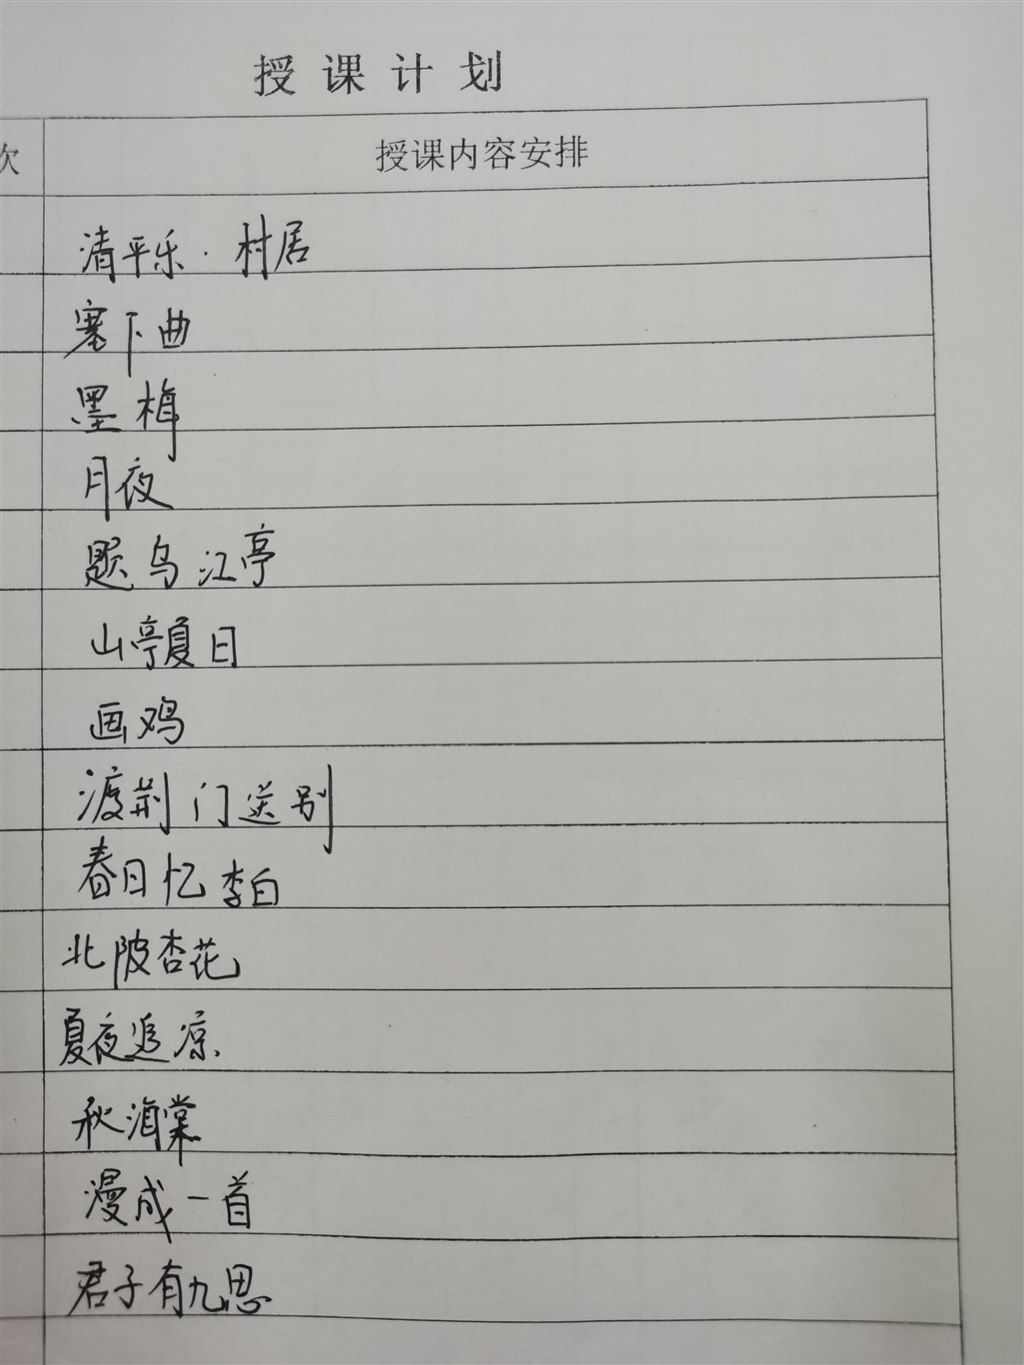 授课计划
次 授课内容安排
清平乐·村居
塞下曲
墨梅
月夜
题乌江亭
山亭夏日
画鸡
渡荆门送别
春日忆李白
北陂杏花
夏夜追凉
秋海棠
漫成一首
君子有九思